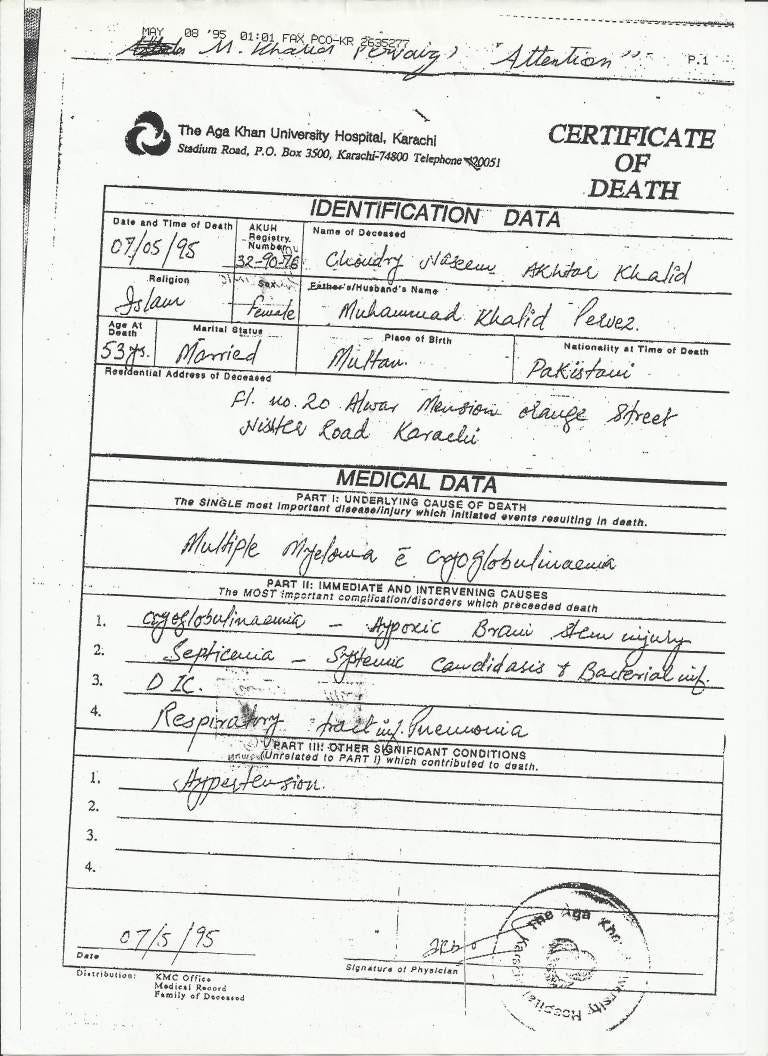 MAY 08 '95 01:01 FAX PCO-KR 2635277 P.1
M. Khalid Pervaiz "Attention"
The Aga Khan University Hospital, Karachi
Stadium Road, P.O. Box 3500, Karachi-74800 Telephone 420051
CERTIFICATE
OF
DEATH
IDENTIFICATION DATA
Date and Time of Death
07/05/95
AKUH
Registry
Number
32-90-76
Name of Deceased
Choudry Naseem Akhtar Khalid
Religion
Islam
Sex
Female
Father's/Husband's Name
Muhammad Khalid Pervez.
Age At
Death
53 yrs.
Marital Status
Married
Place of Birth
Multan.
Nationality at Time of Death
Pakistani
Residential Address of Deceased
Fl. no. 20 Alwar Mension orange Street
Nister Road Karachi
MEDICAL DATA
PART I: UNDERLYING CAUSE OF DEATH
The SINGLE most important disease/injury which initiated events resulting in death.
Multiple Myeloma c̄ cryoglobulinaemia
PART II: IMMEDIATE AND INTERVENING CAUSES
The MOST important complication/disorders which preceeded death
1. cryoglobulinaemia - Hypoxic Brain Stem injury
2. Septicemia - Systemic Candidasis + Bacterial inf.
3. DIC.
4. Respiratory tract inf. Pneumonia
PART III: OTHER SIGNIFICANT CONDITIONS
(Unrelated to PART I) which contributed to death.
1. Hypertension.
2.
3.
4.
07/5/95
Date
Signature of Physician
The Aga Khan University Hospital Karachi
Distribution: KMC Office
Medical Record
Family of Deceased